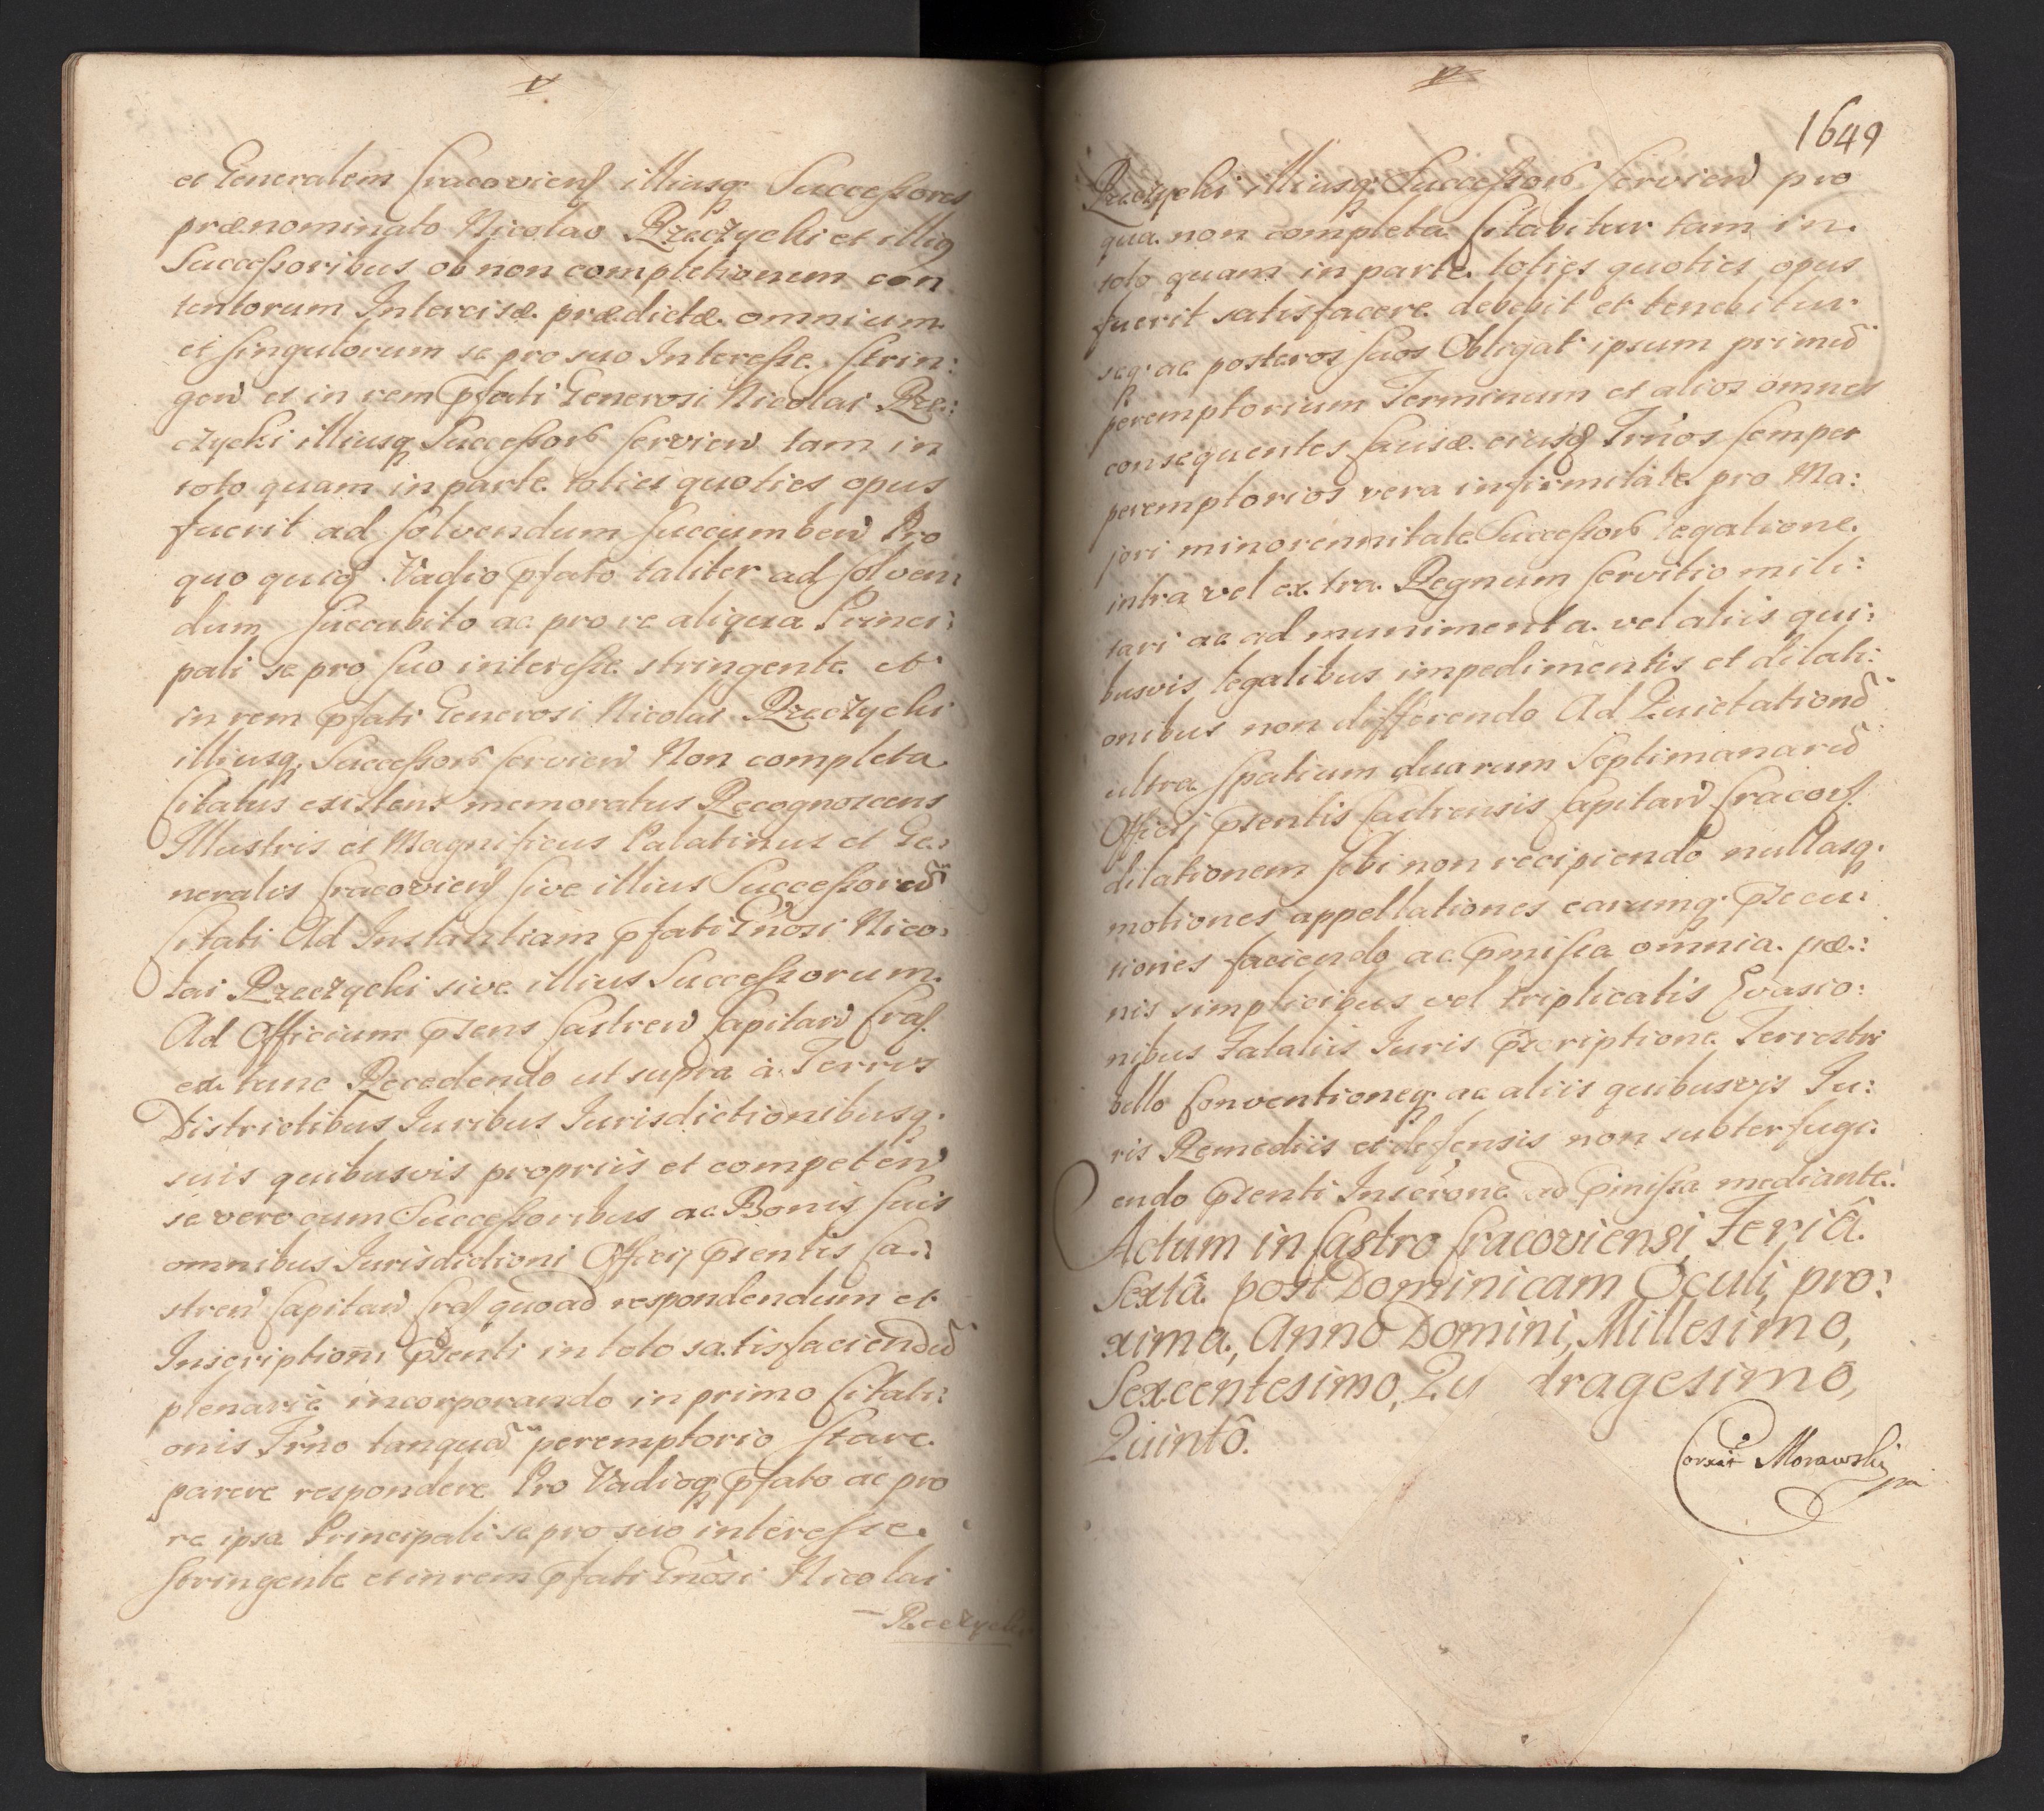 et Generalem Cracovien̄ illiusq̨ Successores
prænominato Nicolao Rzeczycki et illiq
Successoribus ob non completionem con
tentorum Intercisæ prædictæ omnium
et singulorum se pro suo Interesse. strin:
gen̄ et in rem pfati Generosi Nicolai Rze:
czycki illiusq Successorū servien̄ tam in
toto quam in parte toties quoties opus
fuerit ad solvendum succumben̄ Pro
quo quid Vadio pfato taliter ad solven:
dum succubito ac pro re aliqua Princi:
pali se pro suo interesse stringente et
in rem pfati Generosi Nicolai Rzeczycki
illiusq. Successorū servien̄ Non completa
Citatus existens memoratus Recognoscens
Illustris et Magnificus Palatinus et Ge:
neralis Cracovien̄ sive illius Successores
Citati Ad Instantiam pfati Gnosi Nico:
lai Rzeczycki sive illius Successorum
Ad Officium pzens Castren̄ Capitan̄ Cra̅
ex tunc Recedendo ut supra à Terris
Districtibus Iuribus Iurisdictionibusq.
suis quibusvis propriis et competen̄
se vero cum Successoribus ac Bonis suis
omnibus Iurisdictioni Officij pzentis Ca:
stren̄ Capitan̄ Cra̅ quoad respondendum et
Inscriptioni pzenti in toto satisfaciendū
plenariè incorporando in primo Citati:
onis Trno tanquā peremptorio Stare
parere respondere Pro Vadioq pfato ac pro
re ipsa Principali se pro suo interesse.
stringente et in rem pfati Gnosi Nicolai
Rzeczycki
1649
Rzeczycki illiusq Successorū servien̄ pro
qua non completa citabitur tam in
toto quam in parte toties quoties opus
fuerit satisfacere debebit et tenebitur
seq. ac posteros suos Obligat ipsum primū
peremptorium Terminum et alios omnes
consequentes causæ eiusd Trnos semper
peremptorios vera infirmitate pro Ma:
jori minorennitate Successorū legatione
intra vel extra Regnum servitio mili:
tari ac ad munimenta vel aliis qui:
busvis legalibus impedimentis et dilati:
onibus non differendo Ad Quietationē
ultra spatium duarum Septimanarū
Officij pzentis Castrensis Capitan̄ Cracov̄
dilationem sibi non recipiendo nullasq.
motiones appellationes earumq. pzecu:
tiones faciendo ac pmissa omnia pæ:
nis simplicibus vel triplicatis Evasio:
nibus Fataliis Iuris pzcriptione Terrestri
bello Conventioneq. ac aliis quibusvis Iu:
ris Remediis et defensis non subterfugi:
endo pzenti Inscrōne ad pmissa mediante.
Actum in Castro Cracoviensi Feriâ
Sextâ post Dominicam Oculi, pro:
xima, Anno Domini, Millesimo,
Sexcentesimo, Qu dragesimo,
Quintô.
Correxit Morawski